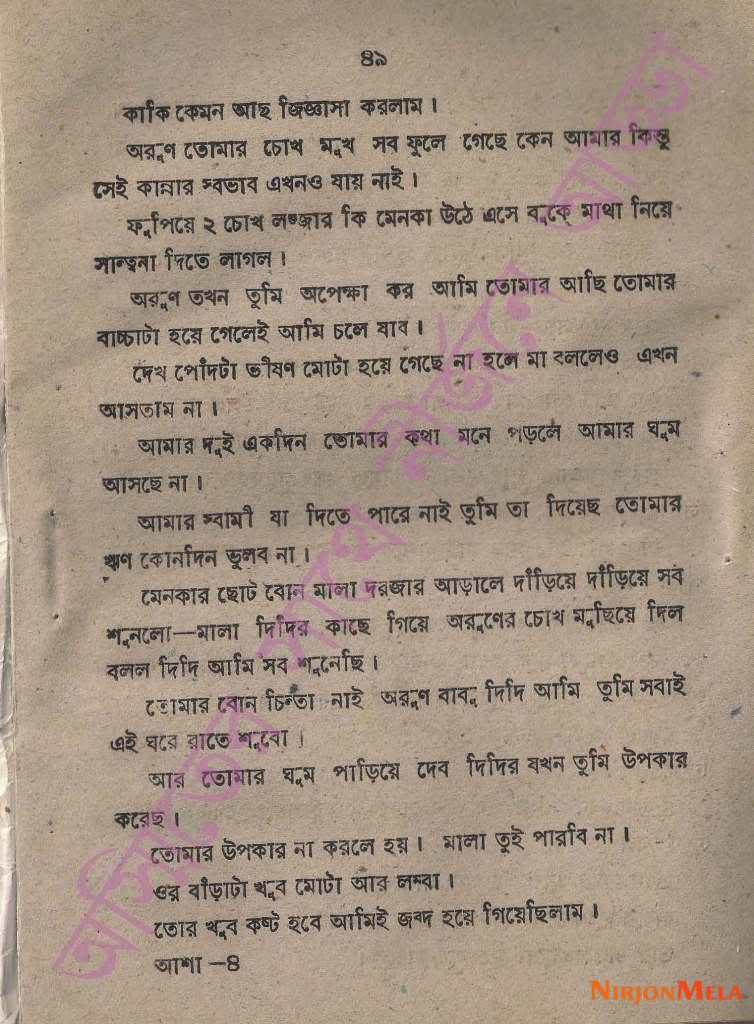 ৪৯
কাকি কেমন আছ জিজ্ঞাসা করলাম ।
অরুণ তোমার চোখ মুখ সব ফুলে গেছে কেন আমার কিন্তু
সেই কান্নার স্বভাব এখনও যায় নাই ।
ফুপিয়ে ২ চোখ লজ্জার কি মেনকা উঠে এসে বুকে মাথা নিয়ে
সান্ত্বনা দিতে লাগল ।
অরুণ তখন তুমি অপেক্ষা কর আমি তোমার আছি তোমার
বাচ্চাটা হয়ে গেলেই আমি চলে যাব ।
দেখ পোঁদটা ভীষণ মোটা হয়ে গেছে না হলে মা বললেও এখন
আসতাম না ।
আমার দুই একদিন তোমার কথা মনে পড়লে আমার ঘুম
আসছে না ।
আমার স্বামী যা দিতে পারে নাই তুমি তা দিয়েছ তোমার
ঋণ কোনদিন ভুলব না ।
মেনকার ছোট বোন মালা দরজার আড়ালে দাঁড়িয়ে দাঁড়িয়ে সব
শুনলো—মালা দিদির কাছে গিয়ে অরুণের চোখ মুছিয়ে দিল
বলল দিদি আমি সব শুনেছি ।
তোমার বোন চিন্তা নাই অরুণ বাবু দিদি আমি তুমি সবাই
এই ঘরে রাতে শুবো ।
আর তোমার ঘুম পাড়িয়ে দেব দিদির যখন তুমি উপকার
করেছ ।
তোমার উপকার না করলে হয় । মালা তুই পারবি না ।
ওর বাঁড়াটা খুব মোটা আর লম্বা ।
তোর খুব কষ্ট হবে আমিই জব্দ হয়ে গিয়েছিলাম ।
আশা —৪
NIRJONMELA